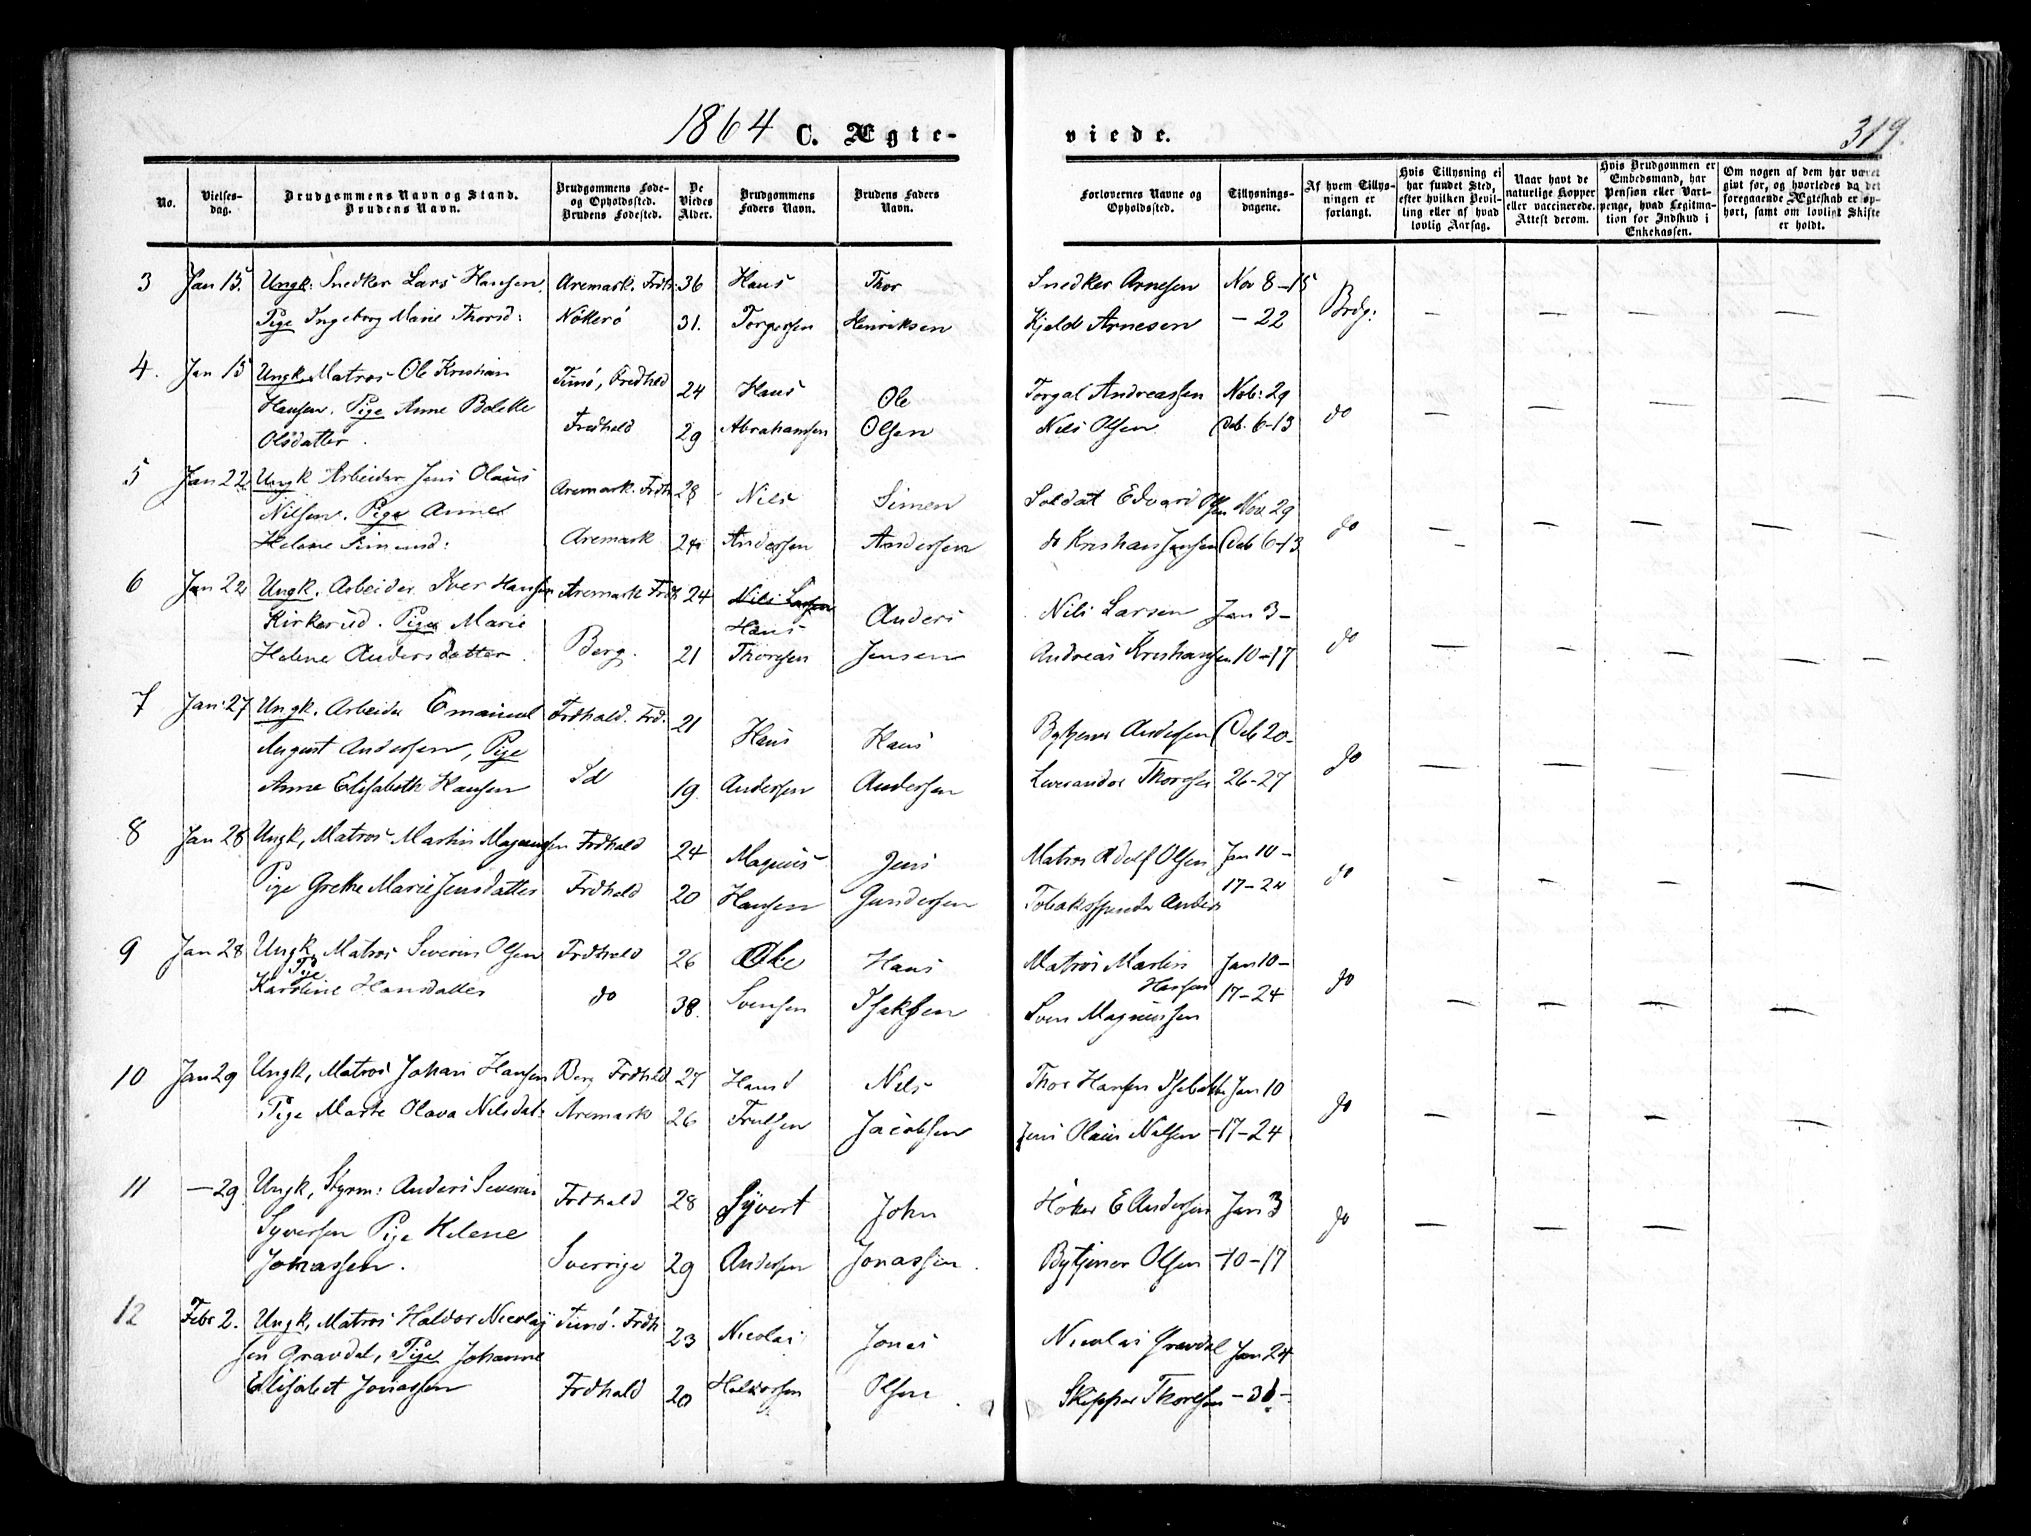 1864 C. Ægteviede. 319.
No.
Vielsesdag.
Brudgommens Navn og Stand. Brudens Navn.
Brudgommens Føde- og Opholdssted. Brudens Fødested.
De Viedes Alder.
Brudgommens Faders Navn.
Brudens Faders Navn.
Forlovernes Navne og Opholdssted.
Tillysningsdagene.
Af hvem Tillysningen er forlangt.
Hvis Tillysning ei har fundet Sted, efter hvilken Bevilling eller af hvad lovlig Aarsag.
Naar havt de naturlige Kopper eller vaccinerede. Attest derom.
Hvis Brudgommen er Embedsmand, har Pension eller Vartpenge, hvad Legitimation for Indskud i Enkekassen.
Om nogen af dem har været givt før, og hvorledes da det foregaaende Ægteskab er ophørt, samt om lovligt Skifte er holdt.
3 Jan 15. Ungk: Snedker Lars Hansen. Aremark. Frdh: 36 Hans Thor Snedker Arnesen Nov 8-15
Pige Ingeborg Marie Thorsd: Nökerö 31. Torgersen Henriksen Kjeld Arnesen - 22 Brdg: — — — —
4. Jan 15 Ungk. Matros Ole Kristian Tunö, Fredhald 24 Hans Ole Torgal Andreassen Nob: 29
Hansen. Pige Anne Bolette Fredhald 29 Abrahamsen Olsen Nils Olsen Deb. 6-13 do — — — — —
Olsdatter.
5 Jan 22 Ungk Arbeider Jens Olaus Aremark. Frdh 28 Nils Simen Soldat Edvard Olsen Nov 29
Nilsen. Pige Anne
Helene Simensd: Aremark 24 Andersen Andersen do Kristian Jensen Deb 6-13 do — — — — —
6 Jan 22 Ungk. Arbeider Iver Hansen Aremark Frdh 24 Nils Larsen Anders Nils Larsen Jan 3-
Kirkerud. Pige Marie Hans
Helene Andersdatter. Berg. 21 Thoresen Jensen Andreas Kristiansen 10-17 do — — — — —
7 Jan: 27 Ungk. Arbeider Emanuel Frdhald. Frd. 21 Hans Hans Bytjener Andersen Deb 20-
August Andersen, Pige
Anne Elisabeth Hansen Id 19. Andersen Andersen Leverandør Thoresen 26-27 do — — — —
8 Jan 28 Ungk, Matros Martin Magnussen Frdhald 24 Magnus Jens Matros Adolf Olsen Jan 10-
Pige Grethe Marie Jensdatter Frdhald 20 Hansen Gundersen Tobakspinder Anders 17-24 do — — — —
9 Jan 28 Ungk Matros Severin Olsen Frdhald 26 Ole Hans Matros Martin Hansen Jan 10-
Pige
Karoline Hansdatter do 38. Svensen Isaksen Sven Magnussen 17-24 do — — — —
10 Jan 29 Ungk, Matros Johan Hansen Berg Frdhld 27 Hans Nils Thor Hansen Jan 10
Pige Marte Olava Nilsdat: Aremark 26 Trulsen Jacobsen Jens Olaus Nilsen -17-24 do — — — —
11 —29 Ungk, Styrm: Anders Severin Frdhald 28 Syvert John Höker E Andersen Jan 3
Syversen Pige Helene
Johnassen. Sverrige 29 Andersen Jonassen. Bytjener Olsen -10-17 do — — —
12 Febr 2. Ungk, Matros Haldor Nicolaj Tunö. Frdh 23 Nicolai Jonas Nicolai Gravdal Jan 24
sen Gravdal, Pige Johanne
Elisabet Jonassen Frdhald 20 Haldorsen Olsen. Skipper Thoresen -31-